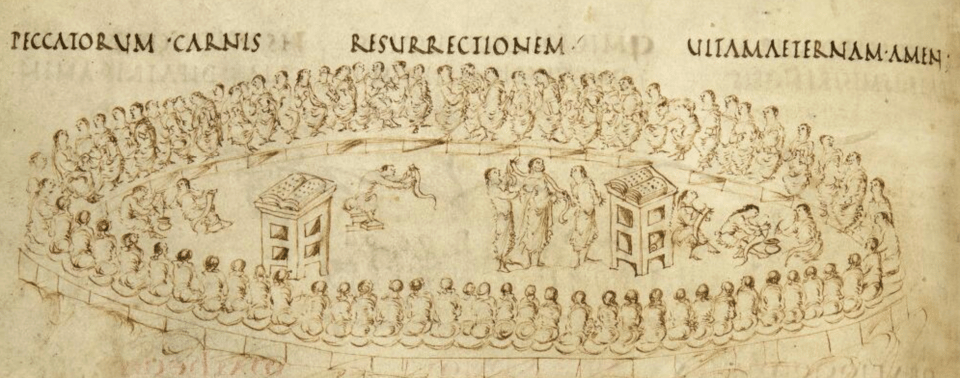 PECCATORUM · CARNIS RESURRECTIONEM · UITAM AETERNAM · AMEN ·